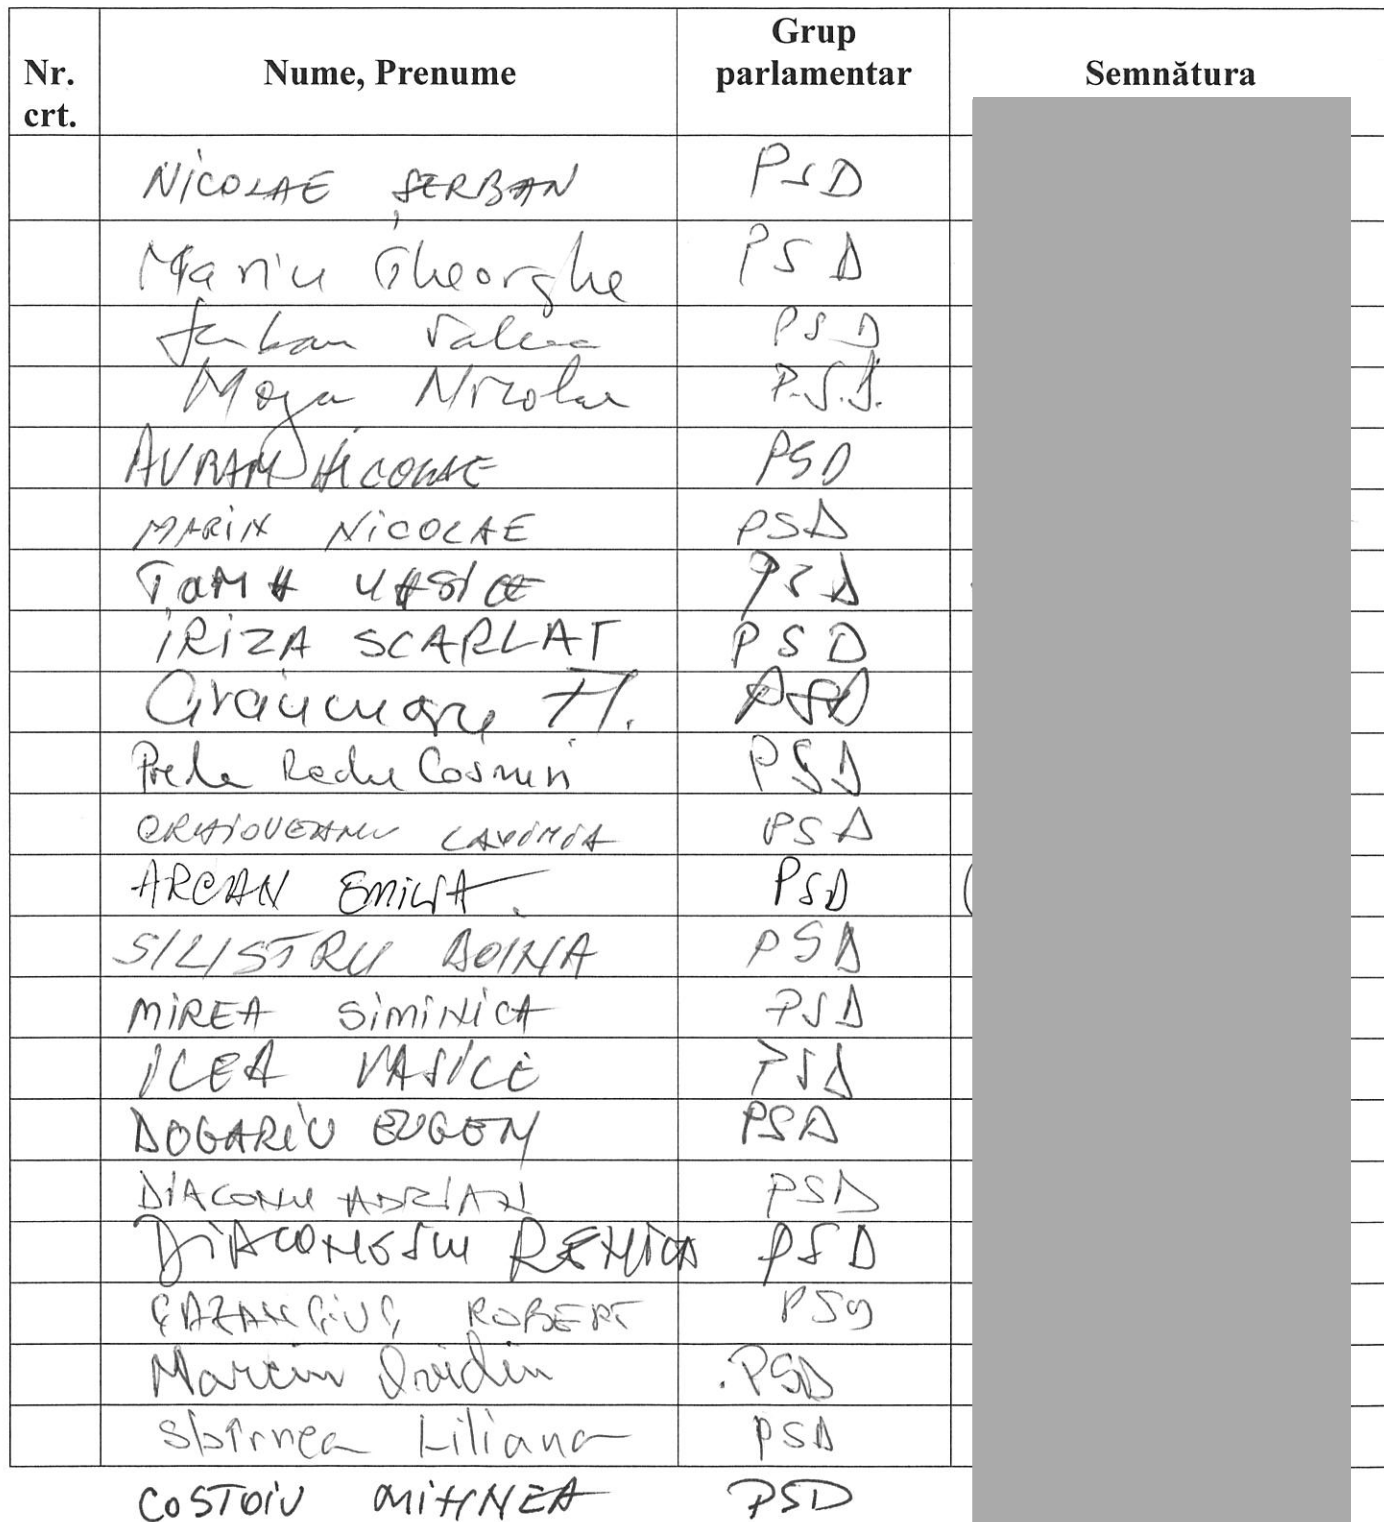 Nr. crt. Nume, Prenume Grup parlamentar Semnătura
NICOLAE ȘERBAN PSD
Marin Gheorghe PSD
Serban Valeca PSD
Moga Nicolae P.S.D.
AVRAM NICOLAE PSD
MARIN NICOLAE PSD
ȚOMA VASILE PSD
IRIZA SCARLAT PSD
PSD
Preda Radu Cosmin PSD
CRAIOVEANU LAVINIA PSD
ARCAN EMILIA. PSD
SILISTRU DOINA PSD
MIREA SIMINICA PSD
ILEA VASILE PSD
DOGARIU EUGEN PSD
DIACONU ADRIAN PSD
DIACONESCU RENICA PSD
CAZANCIUC ROBERT PSD
Marciu Ovidiu PSD
Sbîrnea Liliana PSD
COSTOIU MIHNEA PSD